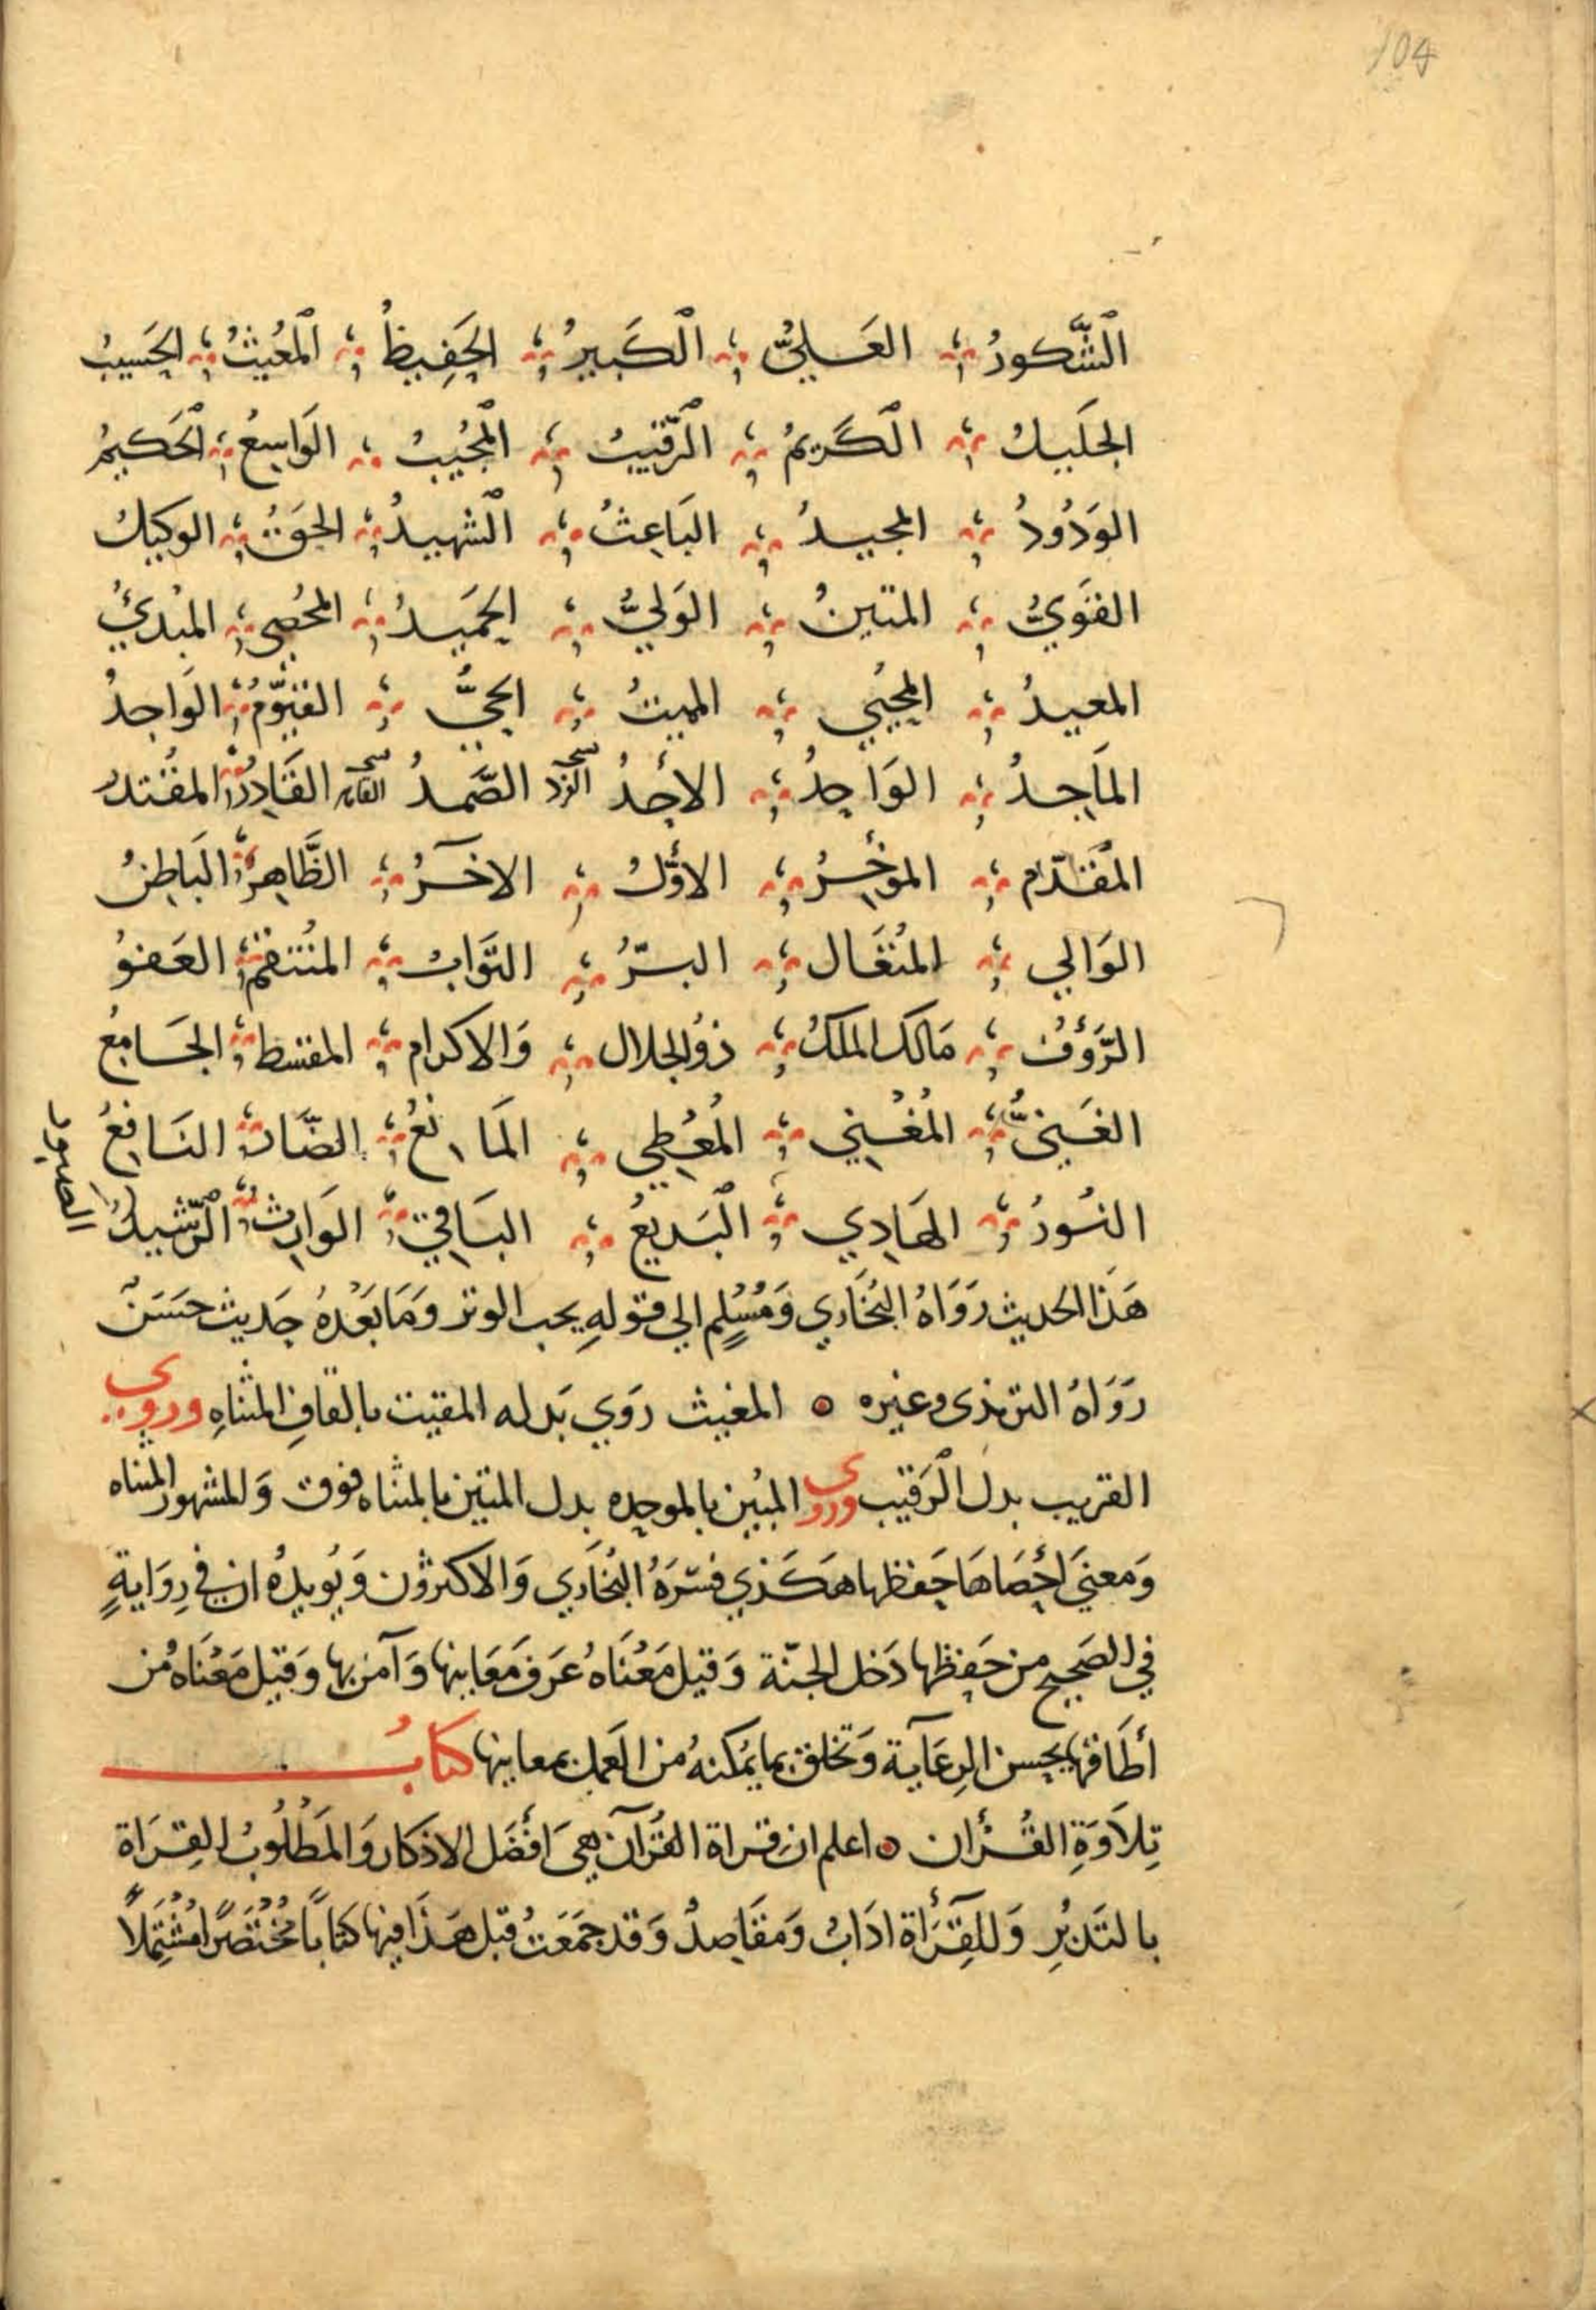 104
الشَّكورُ العَليُّ الكَبيرُ الحَفِيظُ المغُيثُ الحَسيبُ
الجَليلُ الكَريمُ الرَّقيبُ المجُيبُ الوَاسِعُ الحَكيمُ
الوَدُودُ المجيدُ البَاعِثُ الشهيدُ الحَقُّ الوكيلُ
القَويُّ المتينُ الوَليُّ الحَميدُ المحُصي المبُديُ
المعيدُ المحُيي المميتُ الحَيُّ القَيّومُ الوَاجِدُ
المَاجِدُ الوَاحِدُ الأحَدُ الفرد الصَّمدُ القَادِرُ المقُتدرُ
المقَدّم المؤخِرُ الأوّلُ الاخَرُ الظَّاهِرُ البَاطِنُ
الوَالي المتُعَال البرّ التوَّابُ المنُتقمُ العَفوُ
الرَّؤُفُ مَالكُ الملكُ ذوُ الجلال وَالاكرام المقسط الجَامِعُ
الغَنيُّ المُغْني المُعْطِي المَانعُ الضَّارُ النَافِعُ
النُورُ الهَادِي البَديعُ البَاقي الوَارِثُ الرَّشيدُ
الصبور
هَذَا الحديث رَوَاهُ البُخَاري وَمُسْلِم الي قولهِ يحب الوتر وَمَا بَعْدهُ حَديث حسَنٌ
رَوَاهُ الترمذي وغيره المغيث رَوي بَدله المقيت بالقافِ المثناهِ وروي
القريب بدل الرَقيب وروي المبُين بالموحده بدل المتين بالمثناه فوق وَالمشهور المثناه
وَمعنيَ احْصَاهَا حَفظها هَكَذي فسّرَهُ البُخَاري وَالاكثرُون وَيُويدهُ ان في رِوَايةٍ
في الصَحيح من حَفِظها دَخل الجنّة وَقيل مَعْنَاهُ عَرَفَ مَعَانيها وَآمن بها وَقيل مَعْنَاهُ من
أطَاقها بحسن الرِعَايَة وَتخلق بما يمُكنهُ من العَمل بمعانيها كتابُ
تِلاَوَةِ القُرْأن اعلم ان قراة القُرْآن هيَ أفْضَل الاذكار وَالمَطْلُوبُ القِرَاة
بالتَدبُرِ وَللقِرَأة ادَابُ وَمقَاصِدُ وَقد جَمَعتُ قبل هَذَا فيها كتابًا مُخْتَصَرًا مُشْتَمِلاً